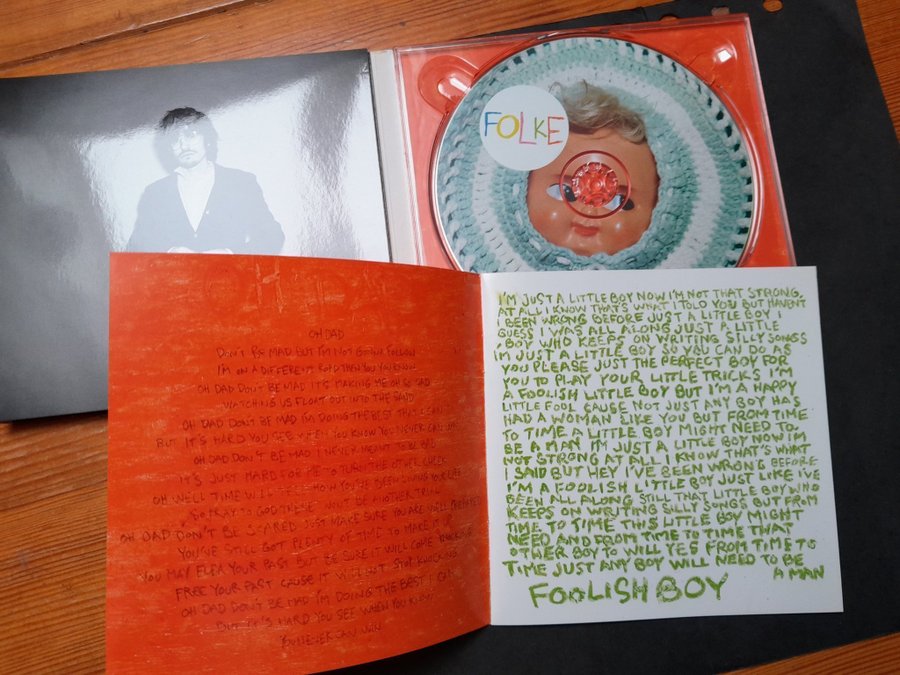 FOLKE
OH DAD
DON'T BE MAD BUT I'M NOT GONNA FOLLOW
I'M ON A DIFFERENT ROAD THEN YOU YOU KNOW
OH DAD DON'T BE MAD IT'S MAKING ME OH SO SAD
WATCHING US FLOAT OUT INTO THE SAND
OH DAD DON'T BE MAD I'M DOING THE BEST THAT I CAN
BUT IT'S HARD YOU SEE WHEN YOU KNOW YOU NEVER CAN WIN
OH DAD DON'T BE MAD I NEVER MEANT TO BE BAD
IT'S JUST HARD FOR ME TO TURN THE OTHER CHEEK
OH WELL TIME WILL TELL HOW YOU'VE BEEN LIVING YOUR LIFE
SO PRAY TO GOD THERE WON'T BE ANOTHER TRIAL
OH DAD DON'T BE SCARED JUST MAKE SURE YOU ARE WELL PREPARED
YOU'VE STILL GOT PLENTY OF TIME TO MAKE IT UP
YOU MAY FLEA YOUR PAST BUT BE SURE IT WILL COME KNOCKING
FREE YOUR PAST CAUSE IT WILL NOT STOP KNOCKING
OH DAD DON'T BE MAD I'M DOING THE BEST I CAN
BUT IT'S HARD YOU SEE WHEN YOU KNOW
YOU NEVER CAN WIN
I'M JUST A LITTLE BOY NOW I'M NOT THAT STRONG
AT ALL I KNOW THAT'S WHAT I TOLD YOU BUT HAVEN'T
I BEEN WRONG BEFORE JUST A LITTLE BOY I
GUESS I WAS ALL ALONG JUST A LITTLE
BOY WHO KEEPS ON WRITING SILLY SONGS
I'M JUST A LITTLE BOY SO YOU CAN DO AS
YOU PLEASE JUST THE PERFECT BOY FOR
YOU TO PLAY YOUR LITTLE TRICKS I'M
A FOOLISH LITTLE BOY BUT I'M A HAPPY
LITTLE FOOL CAUSE NOT JUST ANY BOY HAS
HAD A WOMAN LIKE YOU BUT FROM TIME
TO TIME A LITTLE BOY MIGHT NEED TO
BE A MAN I'M JUST A LITTLE BOY NOW I'M
NOT STRONG AT ALL I KNOW THAT'S WHAT
I SAID BUT HEY I'VE BEEN WRONG BEFORE
I'M A FOOLISH LITTLE BOY JUST LIKE I'VE
BEEN ALL ALONG STILL THAT LITTLE BOY WHO
KEEPS ON WRITING SILLY SONGS BUT FROM
TIME TO TIME THIS LITTLE BOY MIGHT
NEED AND FROM TIME TO TIME THAT
OTHER BOY TO WILL YES FROM TIME TO
TIME JUST ANY BOY WILL NEED TO BE
A MAN
FOOLISH BOY